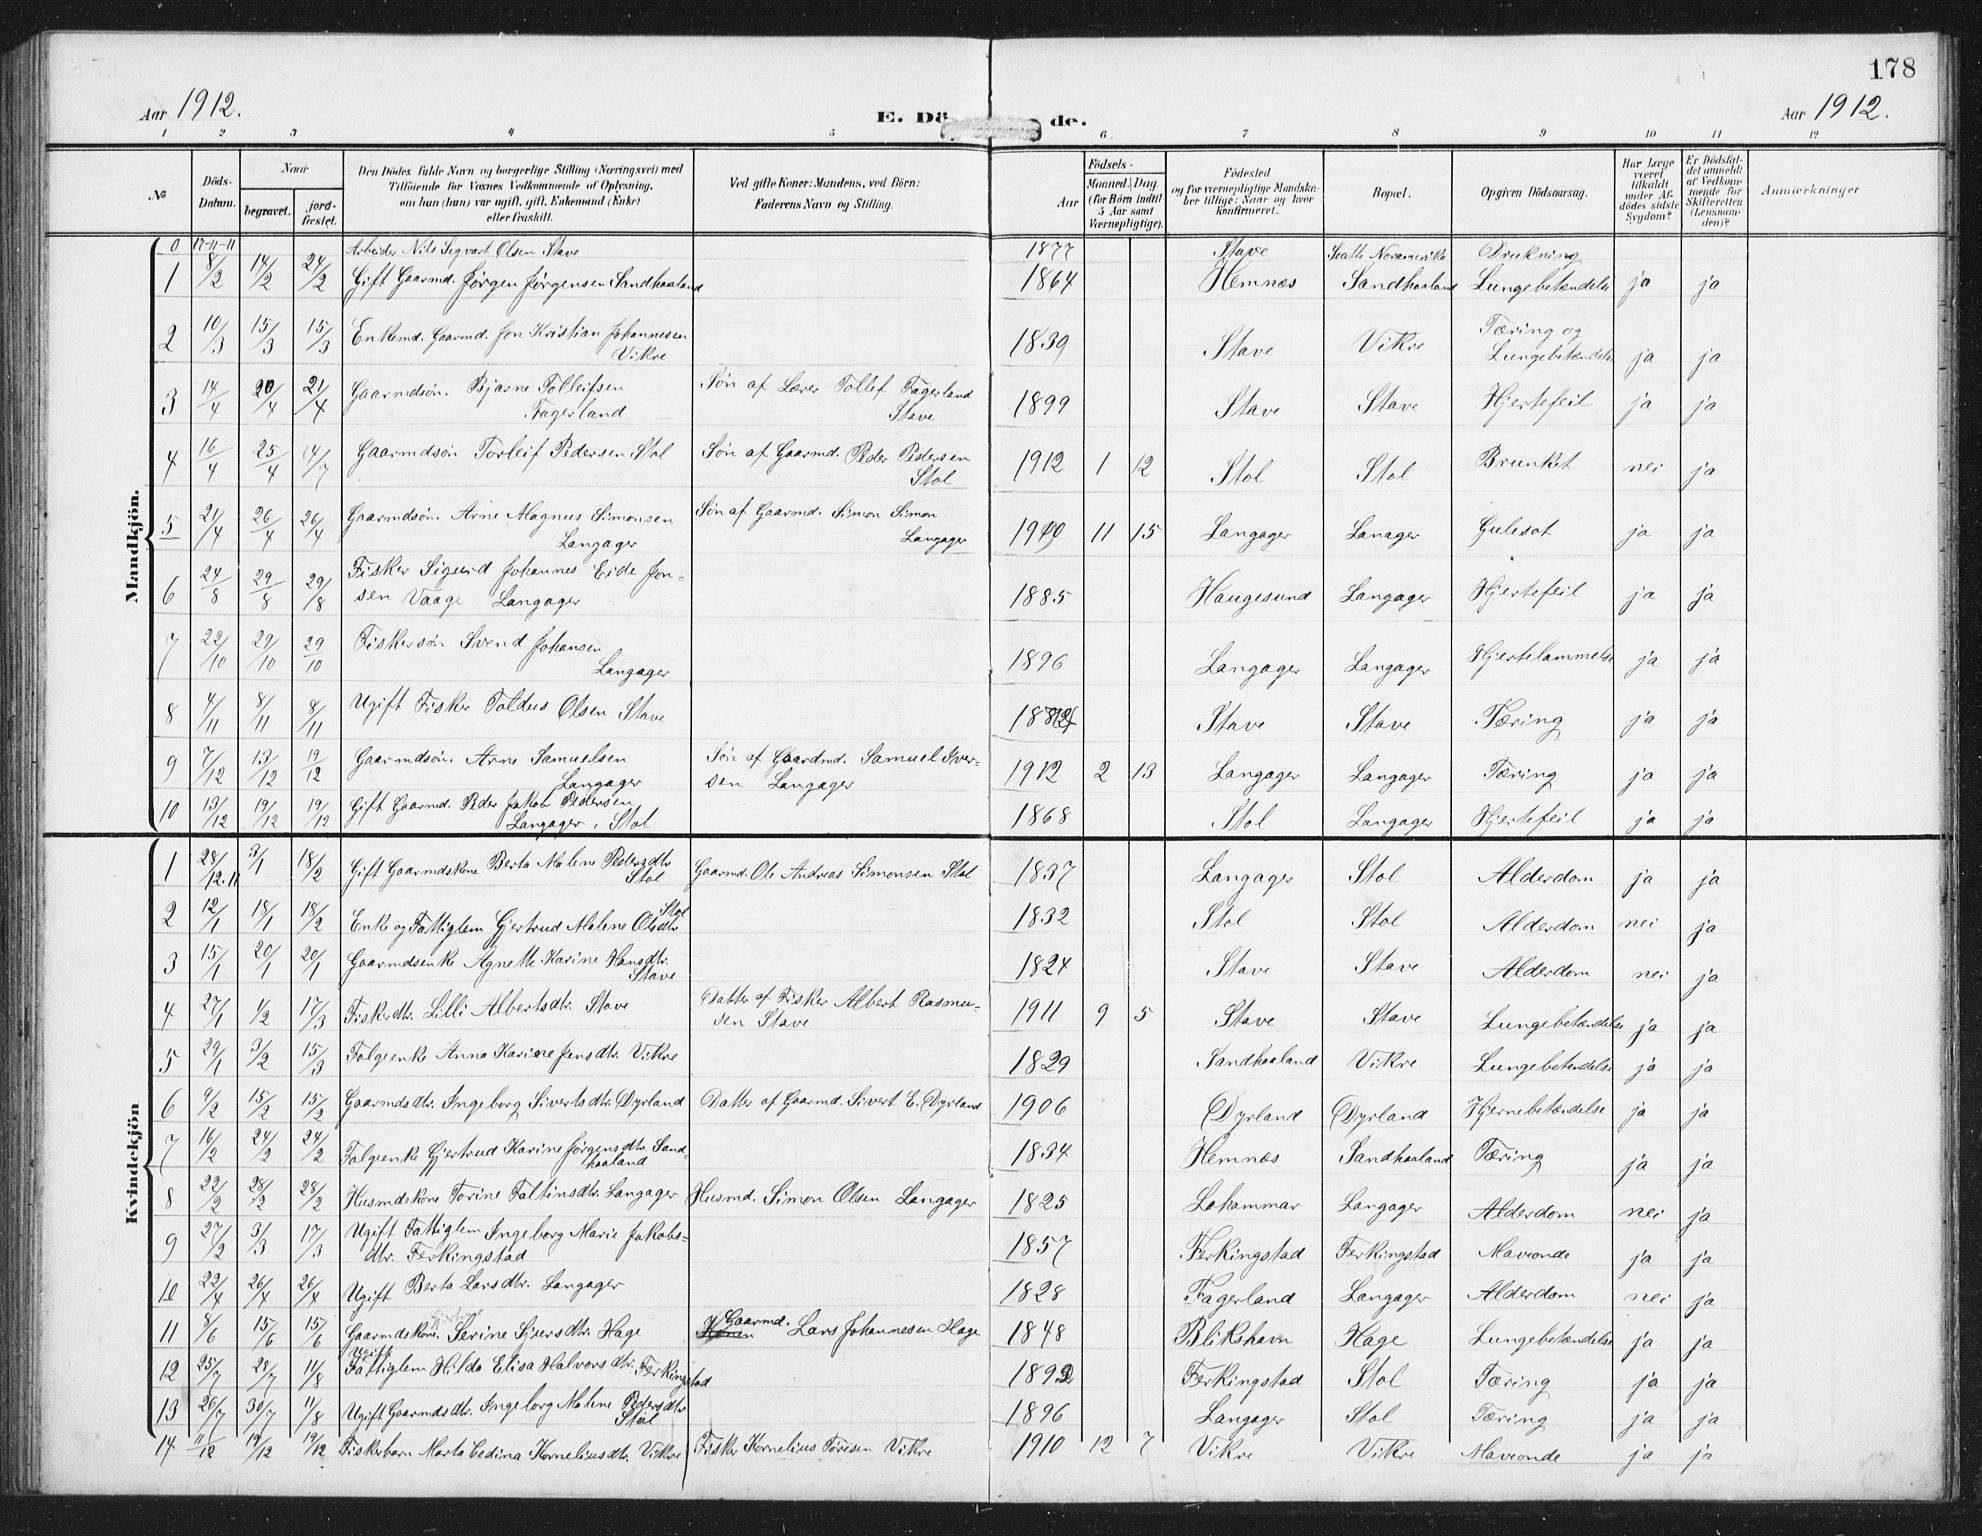 178
Aar 1912. E. Dö de. Aar 1912.
1 2 3 4 5 6 7 8 9 10 11 12
No Döds-Datum. Naar begravet. jord-fæstet. Den Dödes fulde Navn og borgerlige Stilling (Næringsvei) med Tilföiende for Voxnes Vedkommende af Oplysning, om han (hun) var ugift, gift, Enkemand (Enke) eller fraskilt. Ved gifte Koner: Mandens, ved Börn: Faderens Navn og Stilling. Födsels- Aar Maaned. Dag. (for Börn indtil 5 Aar samt Værnepligtige). Födested og for værnepligtige Mandska-ber tillige: Naar og hvor konfirmeret. Bopæl. Opgiven Dödsaarsag. Har Læge været tilkaldt under Af-dödes sidste Sygdom? Er Dödsfal-det anmeldt af Vedkom-mende for Skifteretten (Lensman-den)? Anmærkninger
Mandkjön.
0 17-11-11 Arbeider Nils Segvart Olsen Stave 1877 Stave Seatle Noramerika Drukning
1 8/2 14/2 24/2 Gift Gaarmd. Jørgen Jørgensen Sandhaaland 1864 Hemnæs Sandhaaland Lungebetændelse ja ja
2 10/3 15/3 15/3 Enkemd. Gaarmd. Jon Kristian Johannesen Vikre 1839 Stave Vikre Tæring og Lungebetændelse ja ja
3 14/4 20/4 21/4 Gaarmdsøn. Bjarne Tolleifsen Fagerland Søn af Lærer Tollef Fagerland Stave 1899 Stave Stave Hjertefeil ja ja
4 16/4 25/4 14/7 Gaarmdsøn Torleif Pedersen Stol Søn af Gaarmd. Peder Pedersen Stol 1912 1 12 Stol Stol Brunket nei ja
5 21/4 26/4 26/4 Gaarmdsøn. Arne Magnus Simonsen Langager Søn af Gaarmd. Simon Simon Langager 11 15 Langager Lanager Gulesot ja ja
6 24/8 29/8 29/8 Fisker Sigurd Johannes Eide Jon-sen Vaage Langager 1885 Haugesund Langager Hjertefeil ja ja
7 22/10 29/10 29/10 Fiskersøn Svend Johansen Langager 1896 Langager Langager Hjertelammelse ja ja
8 4/11 8/11 8/11 Ugift Fisker Toldus Olsen Stave Stave Stave Tæring ja ja
9 7/12 13/12 19/12 Gaarmdsøn. Arne Samuelsen Langager Søn af Gaardmd. Samuel Iver-sen Langager 1912 2 13 Langager Langager Tæring ja ja
10 13/12 19/12 19/12 Gift Gaarmd. Peder Jakob Pedersen Langager, Stol 1868 Stol Langager Hjertefeil ja ja
Kvindekjön
1 28/12.11 3/1 18/2 Gift Gaarmdskone Berta Malene Pedersdtr Stol Gaarmd. Ole Andreas Simonsen Stol 1837 Langager Stol Alderdom ja ja
2 12/1 18/1 18/2 Enke og Fattiglem Gjertrud Malene Olsdtr Stol 1832 Stol Stol Alderdom nei ja
3 15/1 20/1 20/1 Gaarmdsenke Agnette Karine Hansdtr. Stave 1824 Stave Stave Alderdom nei ja
4 27/1 1/2 17/3 Fiskerdtr. Lilli Albertsdtr. Stave Datter af Fisker Albert Rasmu-sen Stave 1911 9 5 Stave Stave Lungebetændelse ja ja
5 29/1 3/2 15/3 Folgeenke Anna Karine Jensdtr. Vikre 1829 Sandhaaland Vikre Lungebetendelse ja ja
6 9/2 15/2 15/2 Gaarmdsdtr. Ingeborg Sivertsdtr. Dyrland Datter af Gaarmd. Sivert E. Dyrland 1906 Dyrland Dyrland Hjernebetændelse ja ja
7 16/2 24/2 24/2 Folgeenke Gjertrud Karine Jørgensdtr. Sand-haaland 1834 Hemnæs Sandhaaland Tæring ja ja
8 22/2 28/2 28/2 Husmdskone Torine Faltinsdtr. Langager Husmd. Simon Olsen Langager 1825 Lahammar Langager Alderdom nei ja
9 27/2 3/3 17/3 Ugift Fattiglem Ingeborg Marie Jakobs-dtr. Ferkingstad 1857 Ferkingstad Ferkingstad Maveonde ja ja
10 22/4 26/4 26/4 Ugift Berta Larsdtr. Langager 1828 Fagerland Langager Alderdom nei ja
11 8/6 15/6 15/6 Gaarmdskone. Serine Sjursdtr. Hage Gaarmd. Lars Johannesen Hage 1848 Blikshavn Hage Lungebetændelse ja ja
12 25/7 28/7 11/8 Ugift Fattiglem Hilda Elisa Halvorsdtr. Ferkingstad 1892 Ferkingstad Stol Tæring ja ja
13 26/7 30/7 11/8 Ugift Gaarmdsdtr. Ingeborg Malene Pedersdtr Stol 1896 Langager Stol Tæring ja ja
14 11/12 19/12 19/12 Fiskerbarn Marta Cedina Korneliusdtr. Vikre Fisker Kornelius Toresen Vikre 1910 12 7 Vikre Vikre Maveonde ja ja